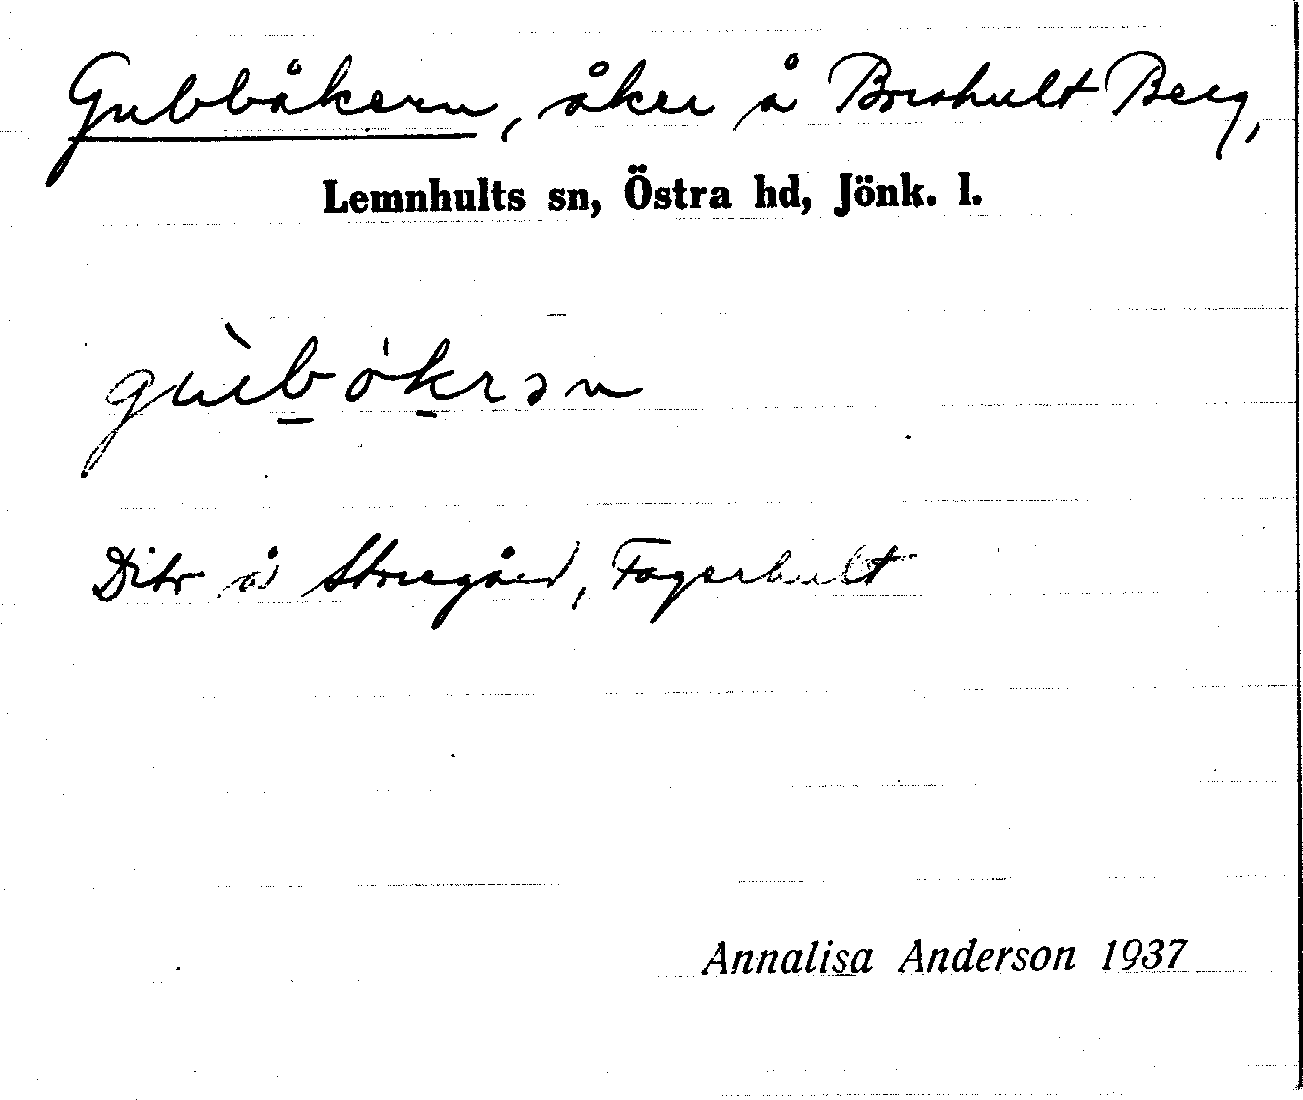 Gubbåkern, åker å Broshult Berg,
Lemnhults sn, Östra hd, Jönk. l.
Dito å Storegård, Fagerhult
Annalisa Anderson 1937